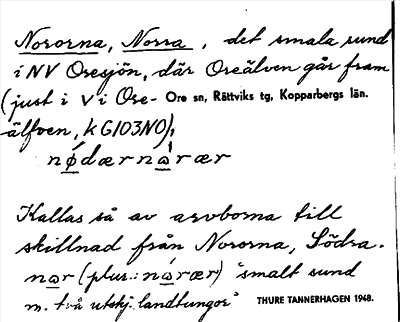 Nororna, Norra, det smala sund
i NV Oresjön, där Oreälven går fram
(just i V i Ore- Ore sn, Rättviks tg, Kopparbergs län.
älfven, k G103NO),
nǿdærnꞷ́rær
Kallas så av orborna till
skillnad från Nororna, Södra.
nꞷr (plur.: nꞷ́rær) "smalt sund
m. två utskj. landtungor" THURE TANNERHAGEN 1948.